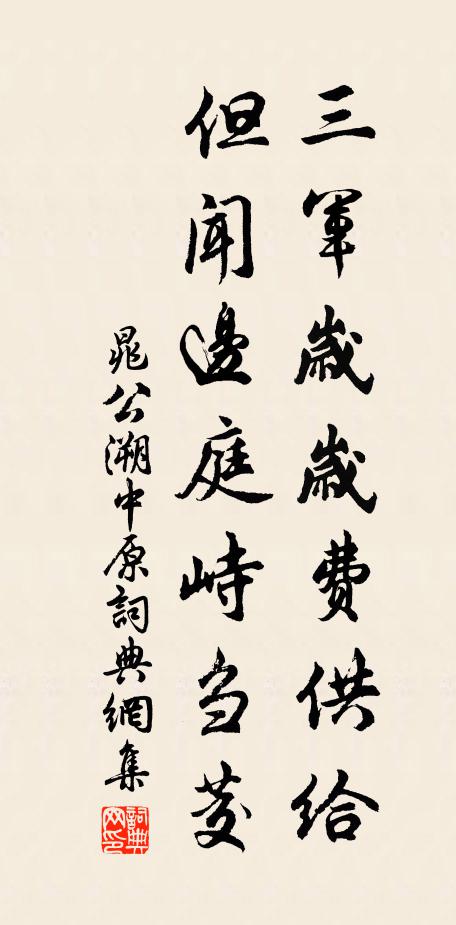 三軍歲歲費供給
但聞邊庭峙芻茭
晁公溯中原詞典網集
詞典網印